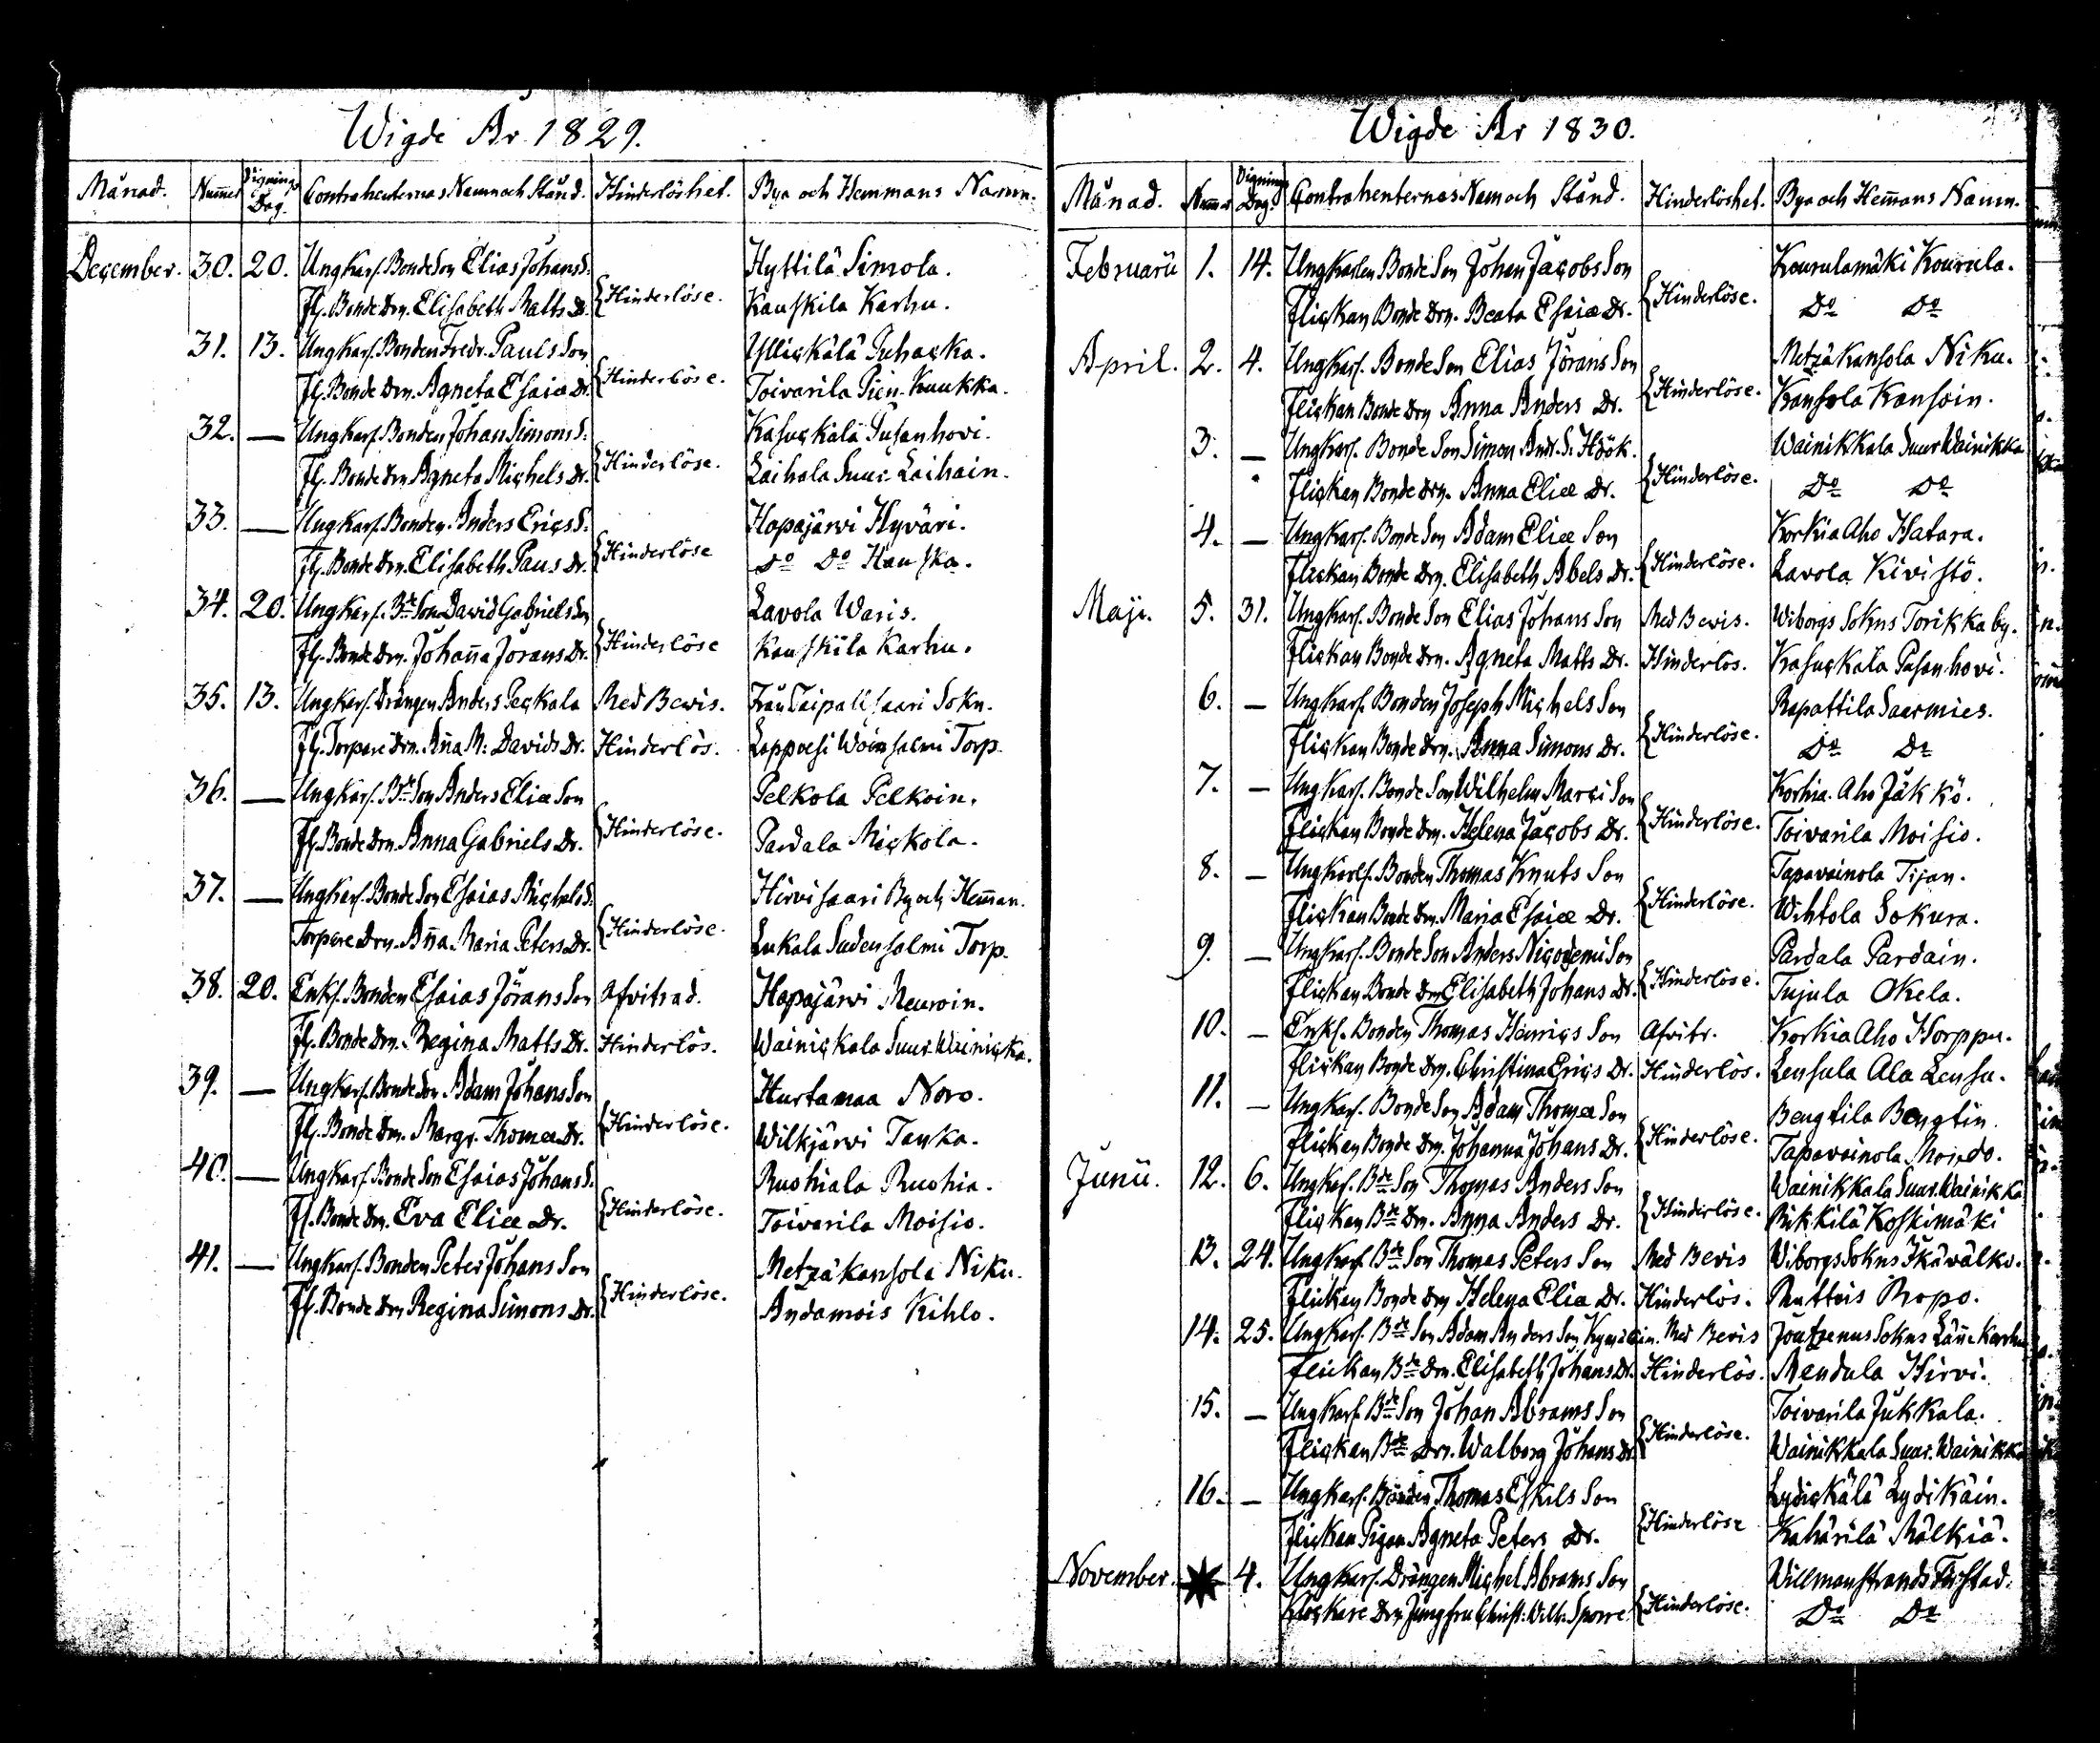 Wigde År 1829.
Månad. Num̄er Vignings Dag. Contrahenternas Namn och Stånd. Hinderlöshet. Bya och Hemmans Namn.
December. 30. 20. Ungkarl. Bonde Son Elias Johans S: Hyttilä Simola.
Fl. Bonde Drn. Elisabeth Matts Dr. {Hinderlöse. Kauskila Karhu.
31. 13. Ungkarl. Bonden Fredr. Pauls Son Yllickälä Puhacka.
Fl. Bonde Drn. Agneta Esaiæ Dr. {Hinderlöse. Toivarila Pien-Kuukka.
32. — Ungkarl. Bonden Johan Simons S: Kasuckälä Pusanhovi.
Fl. Bonde Drn Agneta Michels Dr. {Hinderlöse. Laihala Suur-Laihain.
33. — Ungkarl. Bonden. Anders Erics S: Hapajärvi Hyväri.
Fl. Bonde Drn. Elisabeth Paus Dr. {Hinderlöse Do Do Hauska.
34. 20. Ungkarl. Bde Son David Gabriels Son Lavola Waris.
Fl. Bonde Drn. Johan̄a Jörans Dr. {Hinderlöse Kauskila Karhu.
35. 13. Ungkarl. Drängen Anders Peckala Med Bevis. Från Taipalsaari Sokn.
Fl. Torpare Drn. An̄a M: Davids Dr. Hinderlös. Lappvesi Woinsalmi Torp.
36. — Ungkarl. Bde Son Anders Eliæ Son Pelkola Pelkoin.
Fl. Bonde Drn. Anna Gabriels Dr. {Hinderlöse. Pardala Mickola.
37. — Ungkarl. Bonde Son Esaias Michels S: Hirvisaari By och Hem̄an.
Torpare Drn. An̄a Maria Peters Dr. {Hinderlöse. Lukala Sudensalmi Torp.
38. 20. Enkl. Bonden Esaias Jörans Son Afvitrad. Hapajärvi Meuroin.
Fl. Bonde Drn. Regina Matts Dr. Hinderlös. Wainickala Suur Wainicka.
39. — Ungkarl. Bonde Son. Adam Johans Son Hurtamaa Noro.
Fl. Bonde Drn. Margr. Thomæ Dr. {Hinderlöse. Wilkjärvi Tauka.
40. — Ungkarl. Bonde Son Esaias Johans S. Ruohiala Ruohia.
Fl. Bonde Drn. Eva Eliæ Dr. {Hinderlöse. Toivarila Moisio.
41. — Ungkarl. Bonden Peter Johans Son Metzäkansola Niku.
Fl. Bonde Drn Regina Simons Dr. {Hinderlöse. Andamois Kihlo.
Wigde År 1830.
Månad. Num̄er Vignings Dag. Contrahenternas Namn och Stånd. Hinderlöshet. Bya och Hem̄ans Namn.
Februarii 1. 14. Ungkarlen Bonde Son Johan Jacobs Son Kourulamäki Kourula.
Flickan Bonde Drn. Beata Esaiæ Dr. {Hinderlöse. Do Do
April. 2. 4. Ungkarl. Bonde Son Elias Jörans Son Metzäkansola Niku.
Flickan Bonde Drn Anna Anders Dr. {Hinderlöse. Kansola Kansoin.
3. — Ungkarl. Bonde Son Simon Andr. S: Höök. Wainikkala Suur Wainikka
Flickan Bonde Drn. Anna Eliæ Dr. {Hinderlöse. Do Do
4. — Ungkarl. Bonde Son Adam Eliæ Son Korkia Aho Hatara.
Flickan Bonde Drn. Elisabeth Abels Dr. {Hinderlöse. Lavola Kivistö.
Maji. 5. 31. Ungkarl. Bonde Son Elias Johans Son Med Bevis. Wiborgs Sokns Torikka by.
Flickan Bonde Drn. Agneta Matts Dr. Hinderlös. Kasuckala Pusanhovi.
6. — Ungkarl. Bonden Joseph Michels Son Rapattila Saarmies.
Flickan Bonde Drn. Anna Simons Dr. {Hinderlöse. Do Do
7. — Ungkarl. Bonde Son Wilhelm Marci Son Korkia-Aho Jäkkö.
Flickan Bonde Drn. Helena Jacobs Dr. {Hinderlöse. Toivarila Moisio.
8. — Ungkarl. Bonden Thomas Knuts Son Tapavainola Tijan.
Flickan Bonde Drn. Maria Esaiæ Dr. {Hinderlöse. Wihtola Sokura.
9. — Ungkarl. Bonde Son Anders Nicodemi Son Pardala Pardain.
Flickan Bonde Drn Elisabeth Johans Dr. {Hinderlöse. Tujula Okela.
10. — Enkl. Bonden Thomas Henrics Son Afvitr. Korkia Aho Horppu.
Flickan Bonde Drn. Christina Erics Dr. Hinderlös. Lensula Ala Lensu.
11. — Ungkarl. Bonde Son Adam Thomæ Son Bengtila Bengtin.
Flickan Bonde Drn. Johanna Johans Dr. {Hinderlöse. Tapavainola
Junii. 12. 6. Ungkarl. Bde Son Thomas Anders Son Wainikkala Suur. Wainikka
Flickan Bde Drn. Anna Anders Dr. {Hinderlöse. Koskimäki
13. 24. Ungkarl. Bde Son Thomas Peters Son Med Bevis Wiborgs Sokns Ikävälko.
Flickan Bonde Drn Helena Elia Dr. Hinderlös. Ruttois Ropo.
14. 25. Ungkarl. Bde Son Adam Anders Son Med Bevis Joutzenus Sokns Län̄e Karhu
Flickan Bde Drn. Elisabeth Johans Dr. Hinderlös. Mendula Hirvi.
15. — Ungkarl. Bde Son Johan Abrams Son Toivarila Jukkala.
Flickan Bde Drn. Walborg Johans Dr. {Hinderlöse. Wainikkala Suur. Wainikka
16. — Ungkarl. Bonden Thomas Eskils Son Lydickälä Lydikäin.
Flickan Pigan Agneta Peters Dr. {Hinderlöse Kahärilä Mälkiä.
November. 4. Ungkarl. Drängen Michel Abrams Son Willmanstrands Stad.
Klockare Drn Jungfru Christ: Wilh: Sporre {Hinderlöse. Do Do